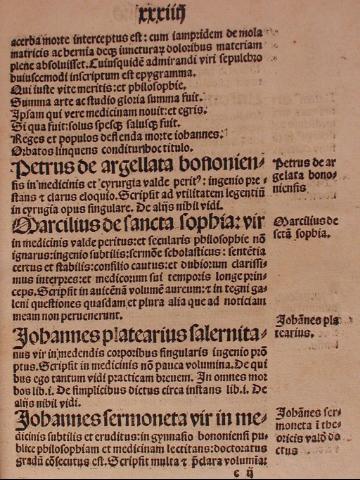 xxxiiij
acerba morte interceptus est: cum iampridem de mola
matricis ac hernia decꝫ iuncturaꝝ doloribus materiam
plene absoluisset. Cuiusquidē admirandi viri sepulchro
huiuscemodi inscriptum est epygramma.
Qui iuste vite meritis: et philosophie.
Summa arte ac studio gloria summa fuit.
Ipsam qui vere medicinam nouit: et egris.
Si qua fuit: solus spesqꝫ salusqꝫ fuit.
Reges et populos deflenda morte iohannes.
Orbatos linquens conditur hoc titulo.
Petrus de argellata bononien-
sis in medicinis et cyrurgia valde peritꝰ: ingenio pre-
stans ⁊ clarus eloquio. Scripsit ad vtilitatem legentiū
in cyrugia opus singulare. De alijs nihil vidi.
Petrus de ar
gelata bono-
niensis
Marcilius de sancta sophia: vir
in medicinis valde peritus: et secularis philosophie nō
ignarus: ingenio subtilis: sermōe scholasticus: sentētia
certus et stabilis: consilio cautus: et dubiorum clarissi-
mus interpres: et medicorum sui temporis longe prin-
ceps. Scripsit in auicēnā volumē aureum: ⁊ in tegni ga-
leni questiones quasdam et plura alia que ad noticiam
meam non peruenerunt.
Marcilius de
sctā sophia.
Johannes platearius salernita-
nus vir in medendis corporibus singularis ingenio prō
ptus. Scripsit in medicinis nō pauca volumina. De qui
bus ego tantum vidi practicam breuem. In omnes mor
bos lib. i. De simplicibus dictus circa instans lib. i. De
alijs nihil vidi.
Johānes pla
tearius.
Johannes sermoneta vir in me-
dicinis subtilis et eruditus: in gymnasio bononiensi pu
blice philosophiam et medicinam lectitans: doctoratus
gradū cōsecutus est. Scripsit multa ⁊ p̄clara volumia:
Johānes ser-
moneta ī the
oricis valde do
ctus
c ij